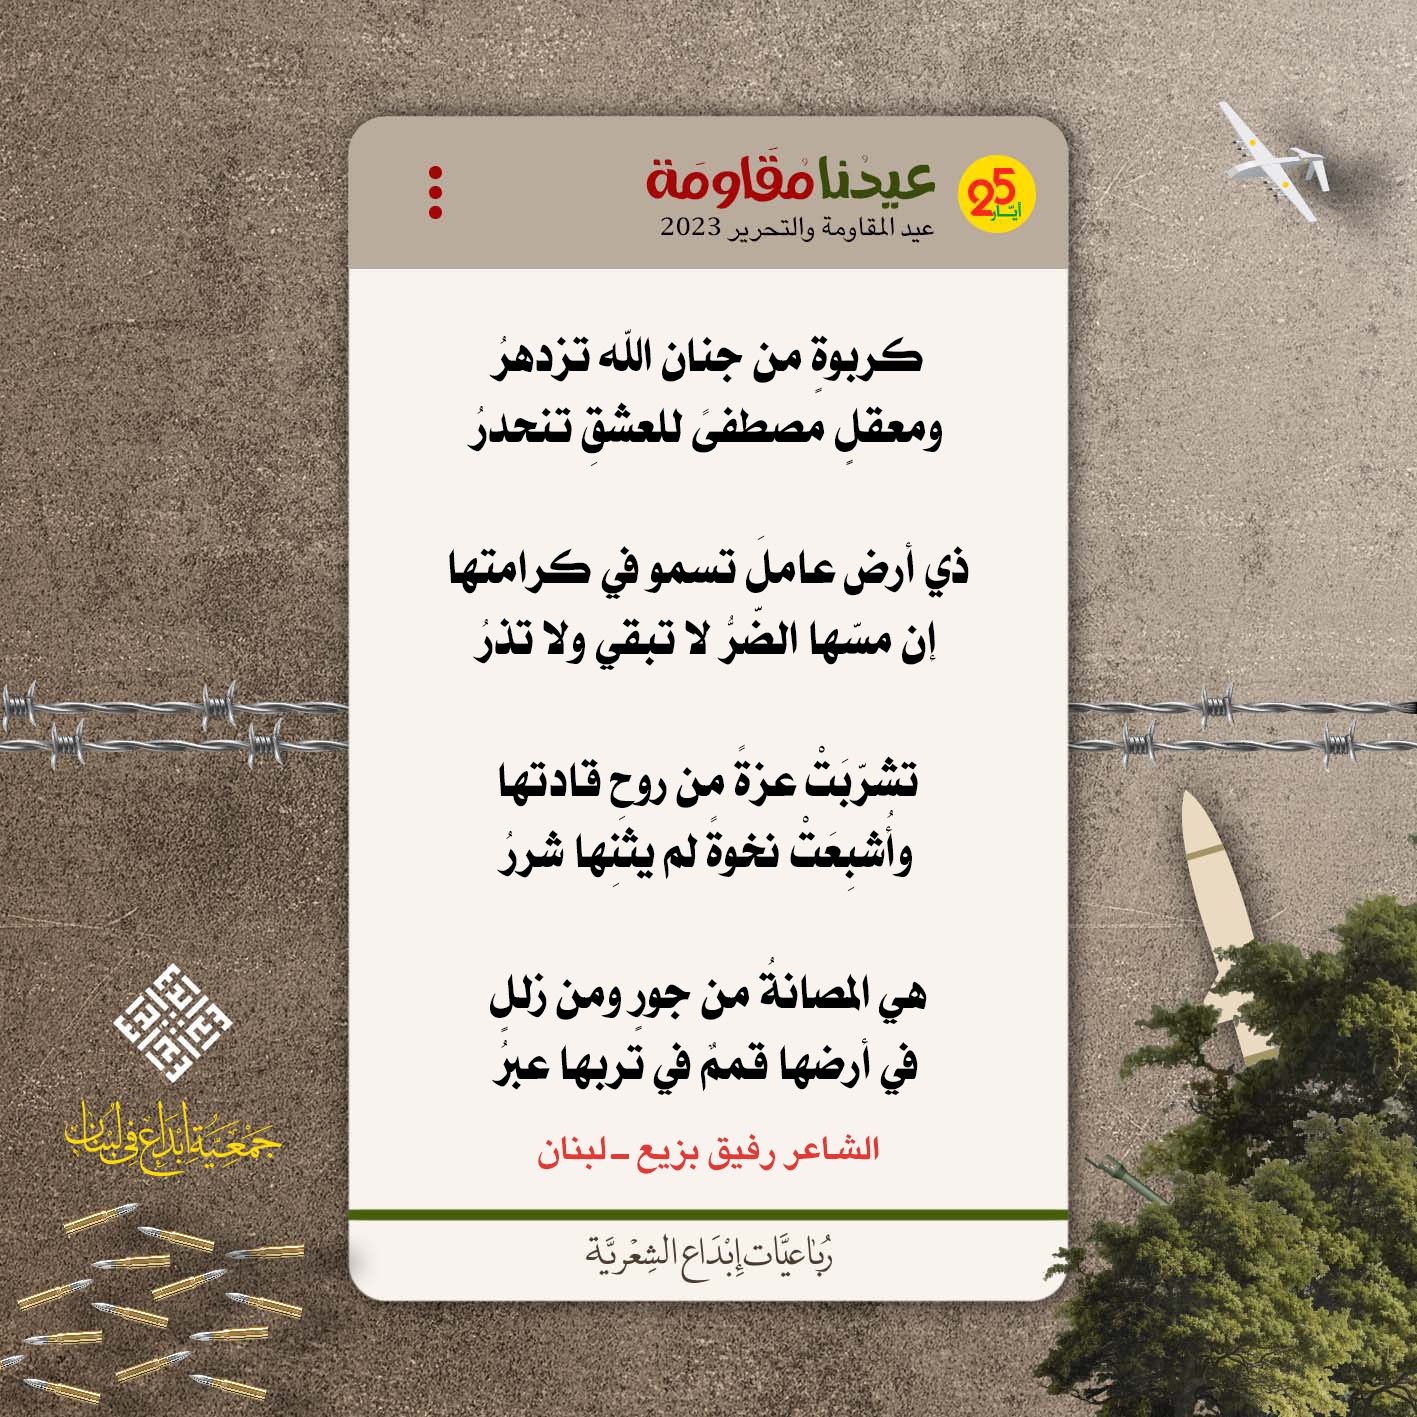 25
أيّار
عيدُنا مُقَاومَة
عيد المقاومة والتحرير 2023
كربوةٍ من جنان اللّه تزدهرُ
ومعقلٍ مصطفىً للعشقِ تنحدرُ
ذي أرض عاملَ تسمو في كرامتها
إن مسّها الضّرُّ لا تبقي ولا تذرُ
تشرّبَتْ عزةً من روحِ قادتها
وأُشبِعَتْ نخوةً لم يثنِها شررُ
هي المصانةُ من جورٍ ومن زللٍ
في أرضها قممٌ في تربها عبرُ
الشاعر رفيق بزيع - لبنان
رُبَاعيَّات إِبْدَاع الشِعْريَّة
جَمْعِيَّة إِبْدَاع فِي لُبْنَان